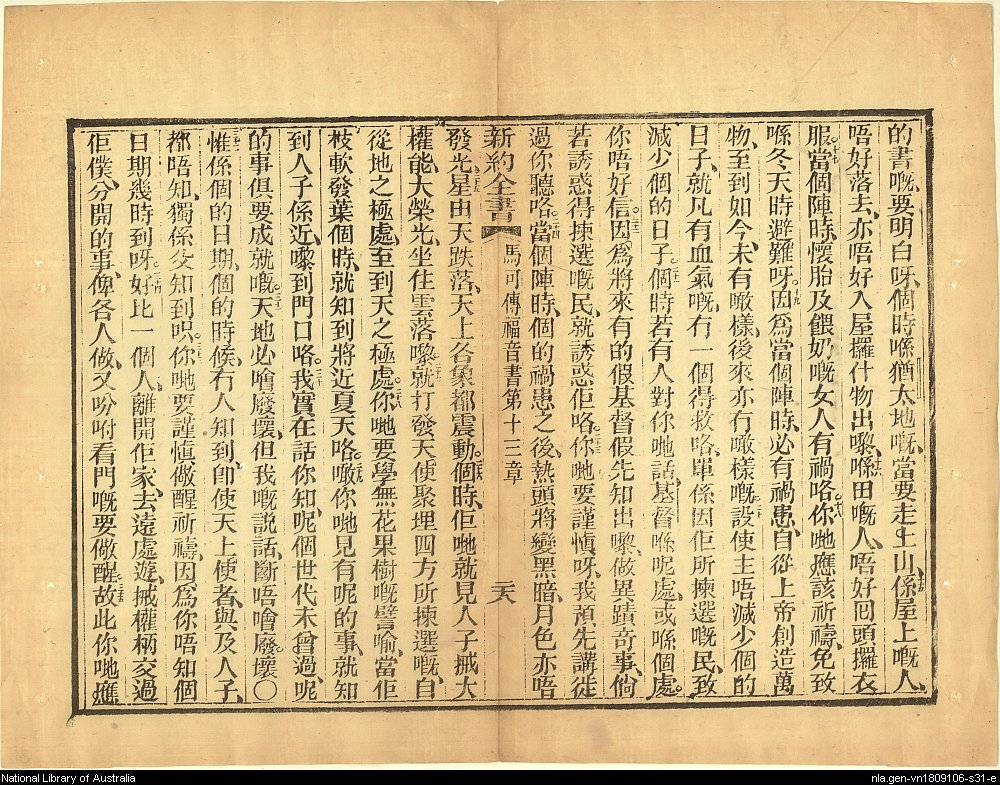 的書嘅、要明白呀、個時喺猶太地嘅、當要走上山、係屋上嘅人、
唔好落去、亦唔好入屋攞什物出嚟、喺田嘅人、唔好囘頭攞衣
服、當個陣時、懷胎及餵奶嘅女人有禍咯。你哋應該祈禱、免致
喺冬天時避難呀。因爲當個陣時、必有禍患、自從上帝創造萬
物、至到如今、未有噉樣、後來亦冇噉樣嘅。設使主唔減少個的
日子、就凡有血氣嘅、冇一個得救咯、單係因佢所揀選嘅民、致
減少個的日子。個時若有人對你哋話、基督喺呢處、或喺個處。
你唔好信。因爲將來有的假基督假先知出嚟、做異蹟奇事、倘
若誘惑得揀選嘅民、就誘惑佢咯。你哋要謹慎呀、我預先講徙
過你聽咯。當個陣時、個的禍患之後、熱頭將變黑暗、月色亦唔
新約全書 馬可傳福音書第十三章 二六
發光、星由天跌落、天上各象都震動。個時、佢哋就見人子㧯大
權能、大榮光、坐住雲落嚟、就打發天使聚埋四方所揀選嘅、自
從地之極處、至到天之極處。你哋要學無花果樹嘅譬喻、當佢
枝軟發葉個時、就知到將近夏天咯。噉你哋見有呢的事、就知
到人子係近、嚟到門口咯。我實在話你知、呢個世代未曾過、呢
的事俱要成就嘅。天地必噲廢壞、但我嘅說話、斷唔噲廢壞〇
惟係個的日期、個的時候、冇人知到、卽使天上使者、與及人子、
都唔知、獨係父知到呮。你哋要謹慎儆醒祈禱、因爲你唔知個
日期幾時到呀。好比一個人、離開佢家、去遠處遊、㧯權柄交過
佢僕、分開的事、俾各人做、又吩咐看門嘅要儆醒。故此你哋應
National Library of Australia
nla.gen-vn1809106-s31-e